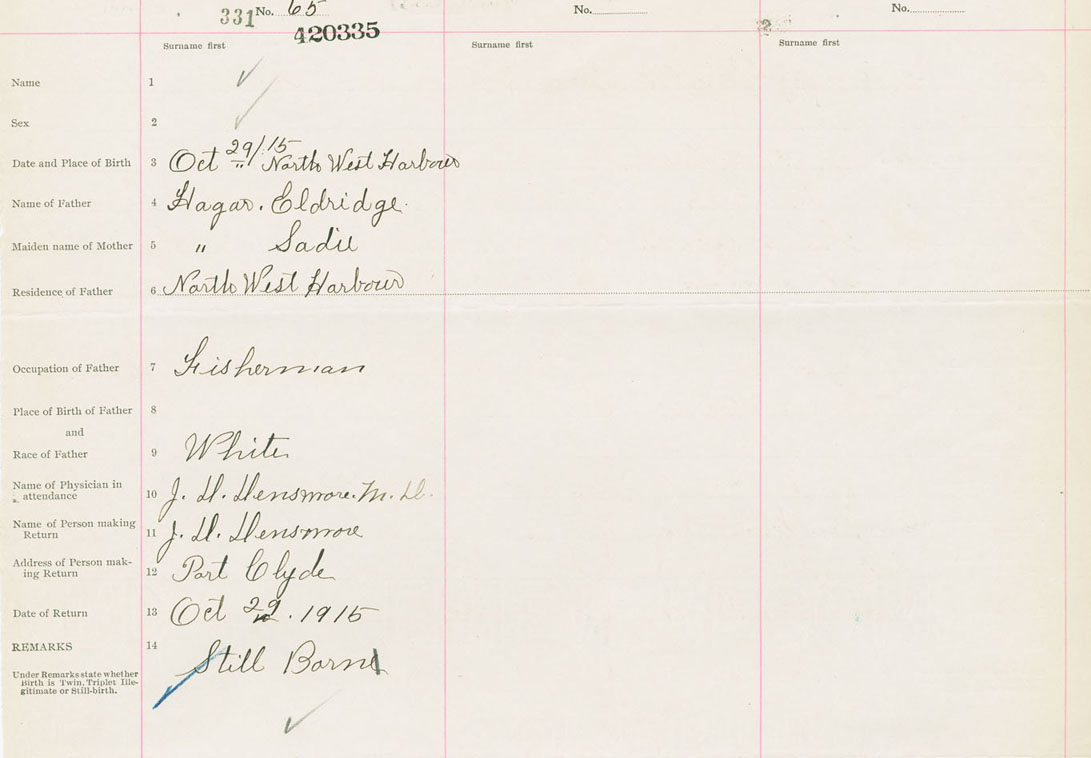 331 No. 65 No. No.
420335 2
Surname first Surname first Surname first
Name 1
Sex 2
Date and Place of Birth 3 Oct 29/15 " North West Harbour
Name of Father 4 Hagar. Eldridge.
Maiden name of Mother 5 " Sadie
Residence of Father 6 North West Harbour
Occupation of Father 7 Fisherman
Place of Birth of Father 8
and
Race of Father 9 White
Name of Physician in
attendance 10 J. D. Densmore. M. D.
Name of Person making
Return 11 J. D. Densmore
Address of Person mak-
ing Return 12 Port Clyde
Date of Return 13 Oct 29. 1915
REMARKS 14 Still Born
Under Remarks state whether
Birth is Twin, Triplet Ille-
gitimate or Still-birth.